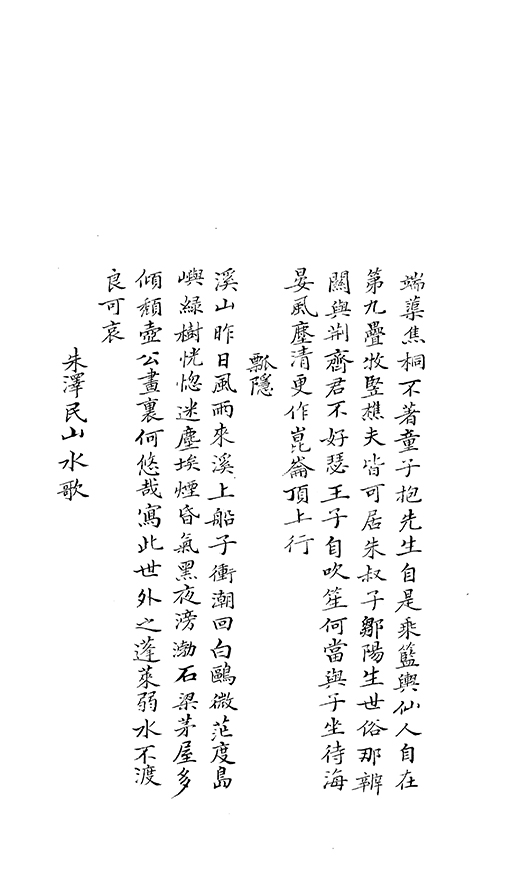 端蕖焦桐不著童子抱先生自是乘籃輿仙人自在
第九疊牧豎樵夫皆可居朱叔子鄒陽生世俗那辨
關與荆齊君不好瑟王子自吹笙何當與子坐待海
晏風塵清更作崑崙頂上行
瓢隱
溪山昨日風雨來溪上船子衝潮回白鷗微茫度島
嶼綠樹恍惚迷塵埃煙昏氣黑夜滂渤石梁茅屋多
傾頹壺公畫裏何悠哉寫此世外之蓬萊弱水不渡
良可哀
朱澤民山水歌